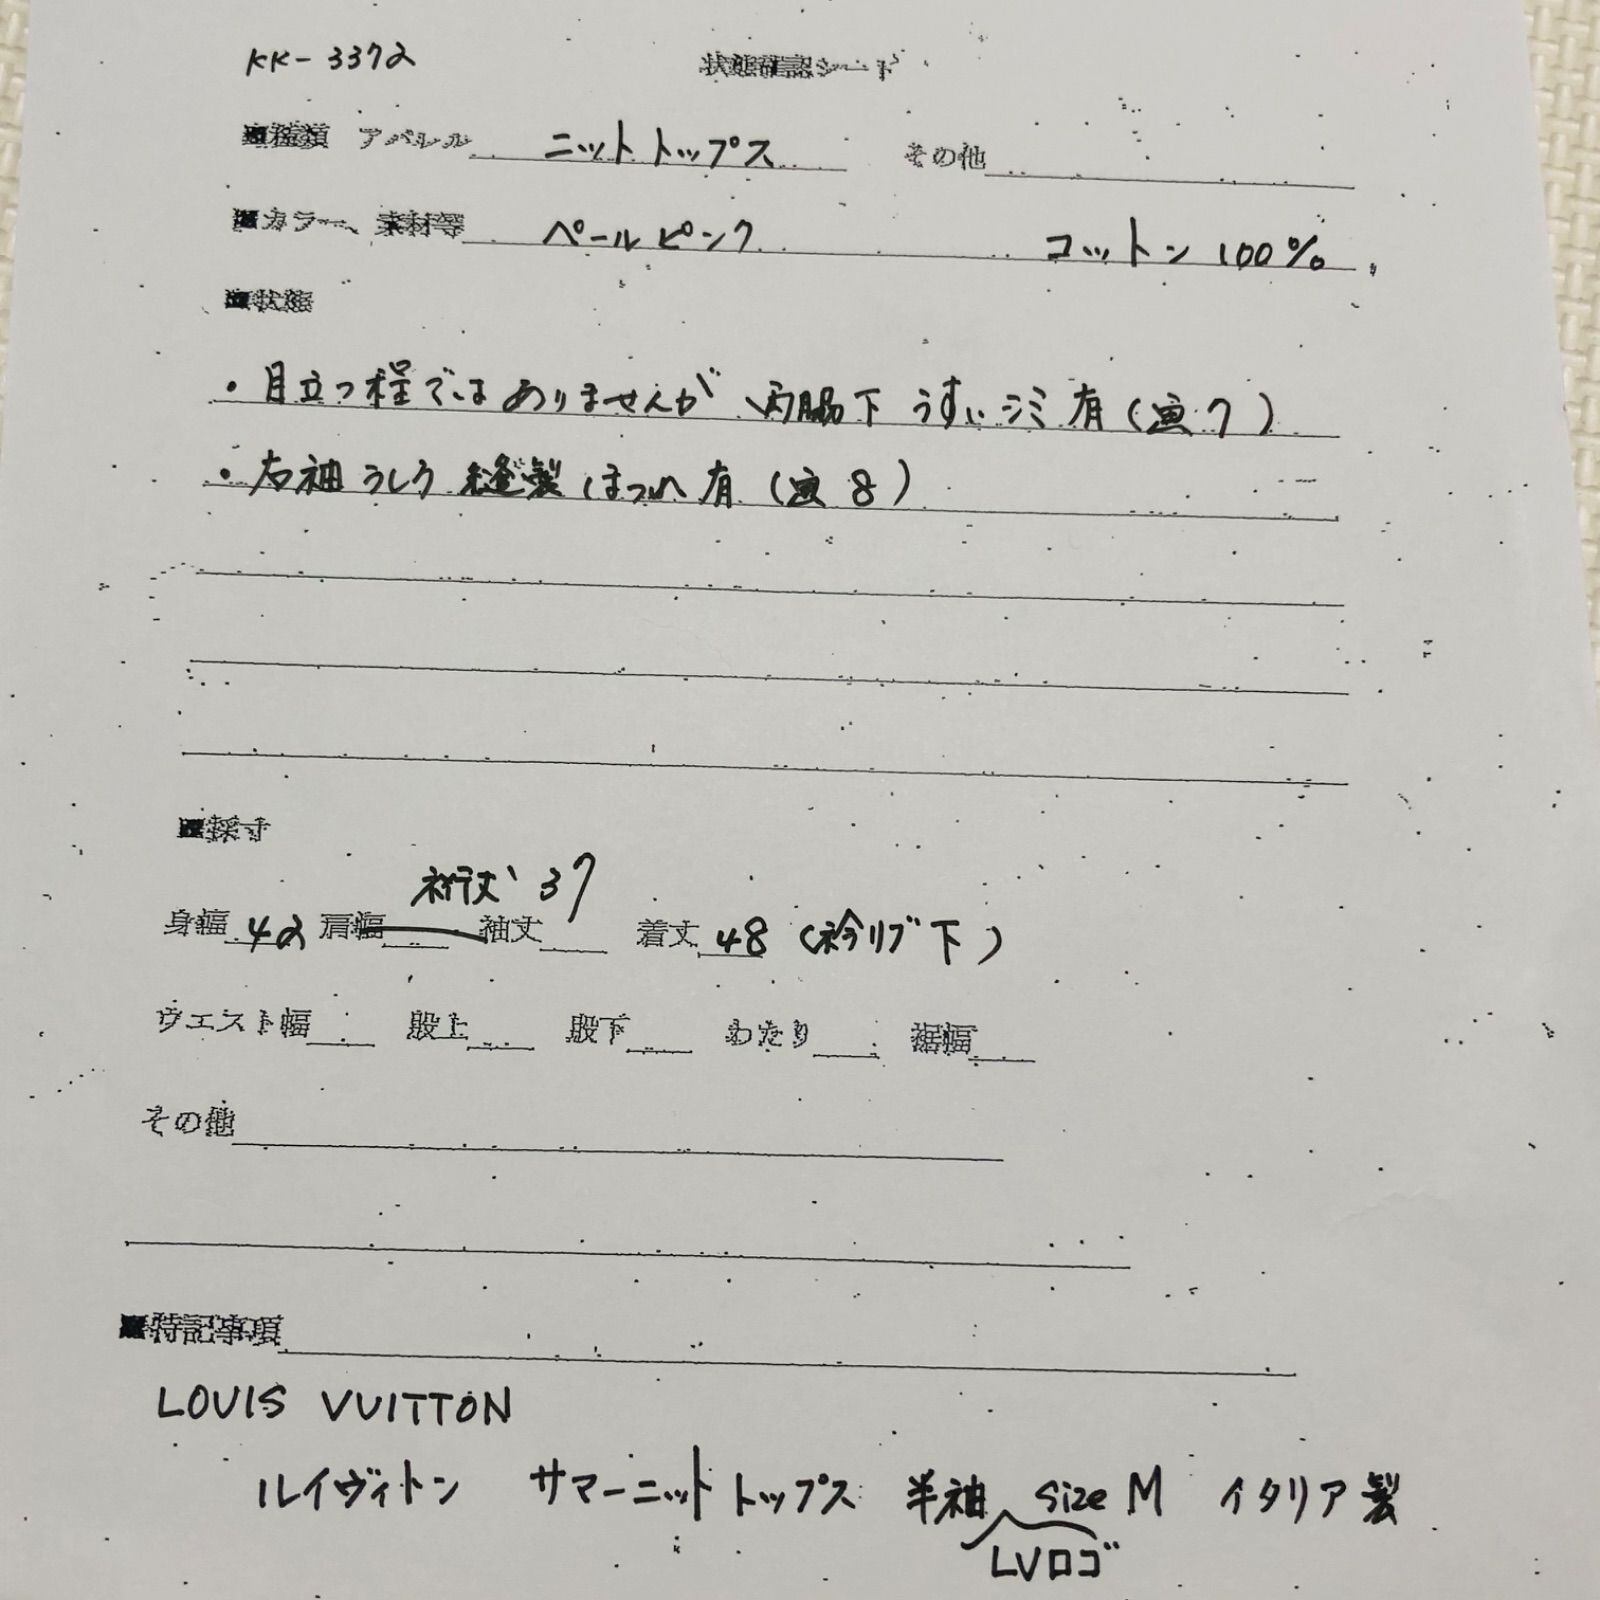 KK-3372
状態確認シート
■種類 アパレル ニットトップス その他
■カラー、素材等 ペールピンク コットン100%
■状態
・目立つ程ではありませんが、両脇下 うすいシミ有(画7)
・右袖うしろ 縫製ほつれ有(画8)
■採寸
裄丈 37
身幅 42 肩幅 袖丈 着丈 48 (衿リブ下)
ウエスト幅 股上 股下 わたり 裾幅
その他
■特記事項
LOUIS VUITTON
ルイヴィトン サマーニットトップス 半袖 size M イタリア製
LVロゴ